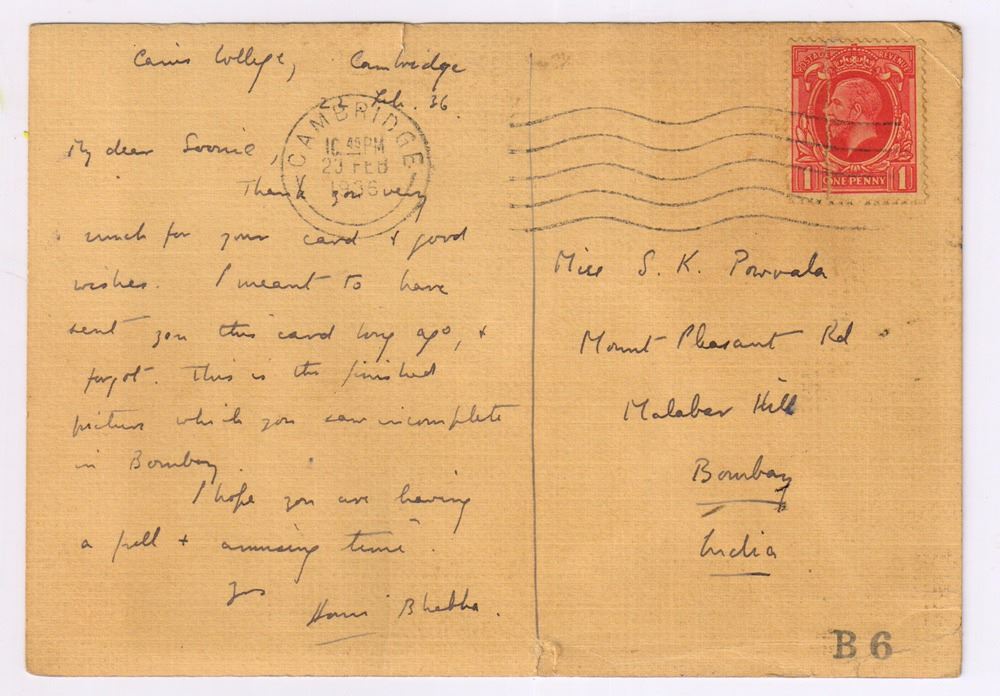 Caius College, Cambridge
22 Feb. 36
My dear Soonie,
Thank you very
much for your card & good
wishes. I meant to have
sent you this card long ago, &
forgot. This is the finished
picture which you saw incomplete
in Bombay.
I hope you are having
a full & amusing time.
Yrs
Homi Bhabha.
CAMBRIDGE
10 45 PM
23 FEB
1936
POSTAGE REVENUE
1 ONE PENNY 1
Miss S. K. Powvala
Mount Pleasant Rd
Malabar Hill
Bombay
India
B 6